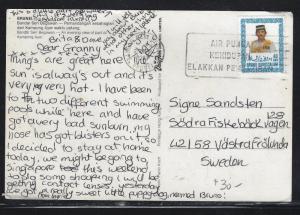 BRUNEI
Dear Granny
Things are great here! The
Sun is always out and it's
very very hot. I have been
to the two different swimming
pools while here, and have
got a very bad sunburn, my
nose has got blisters on it, so I
decided to stay at home
today, we might be going to
Singapore this weekend
to do some shopping (I will be
getting contact lenses, yesterday
we got a really sweet little puppy dog named Bruno!
AIR PUNCA
ELAKKAN
Signe Sandsten
Södra Fiskebäcksvägen
128
42158 Västra Frölunda
Sweden
30-